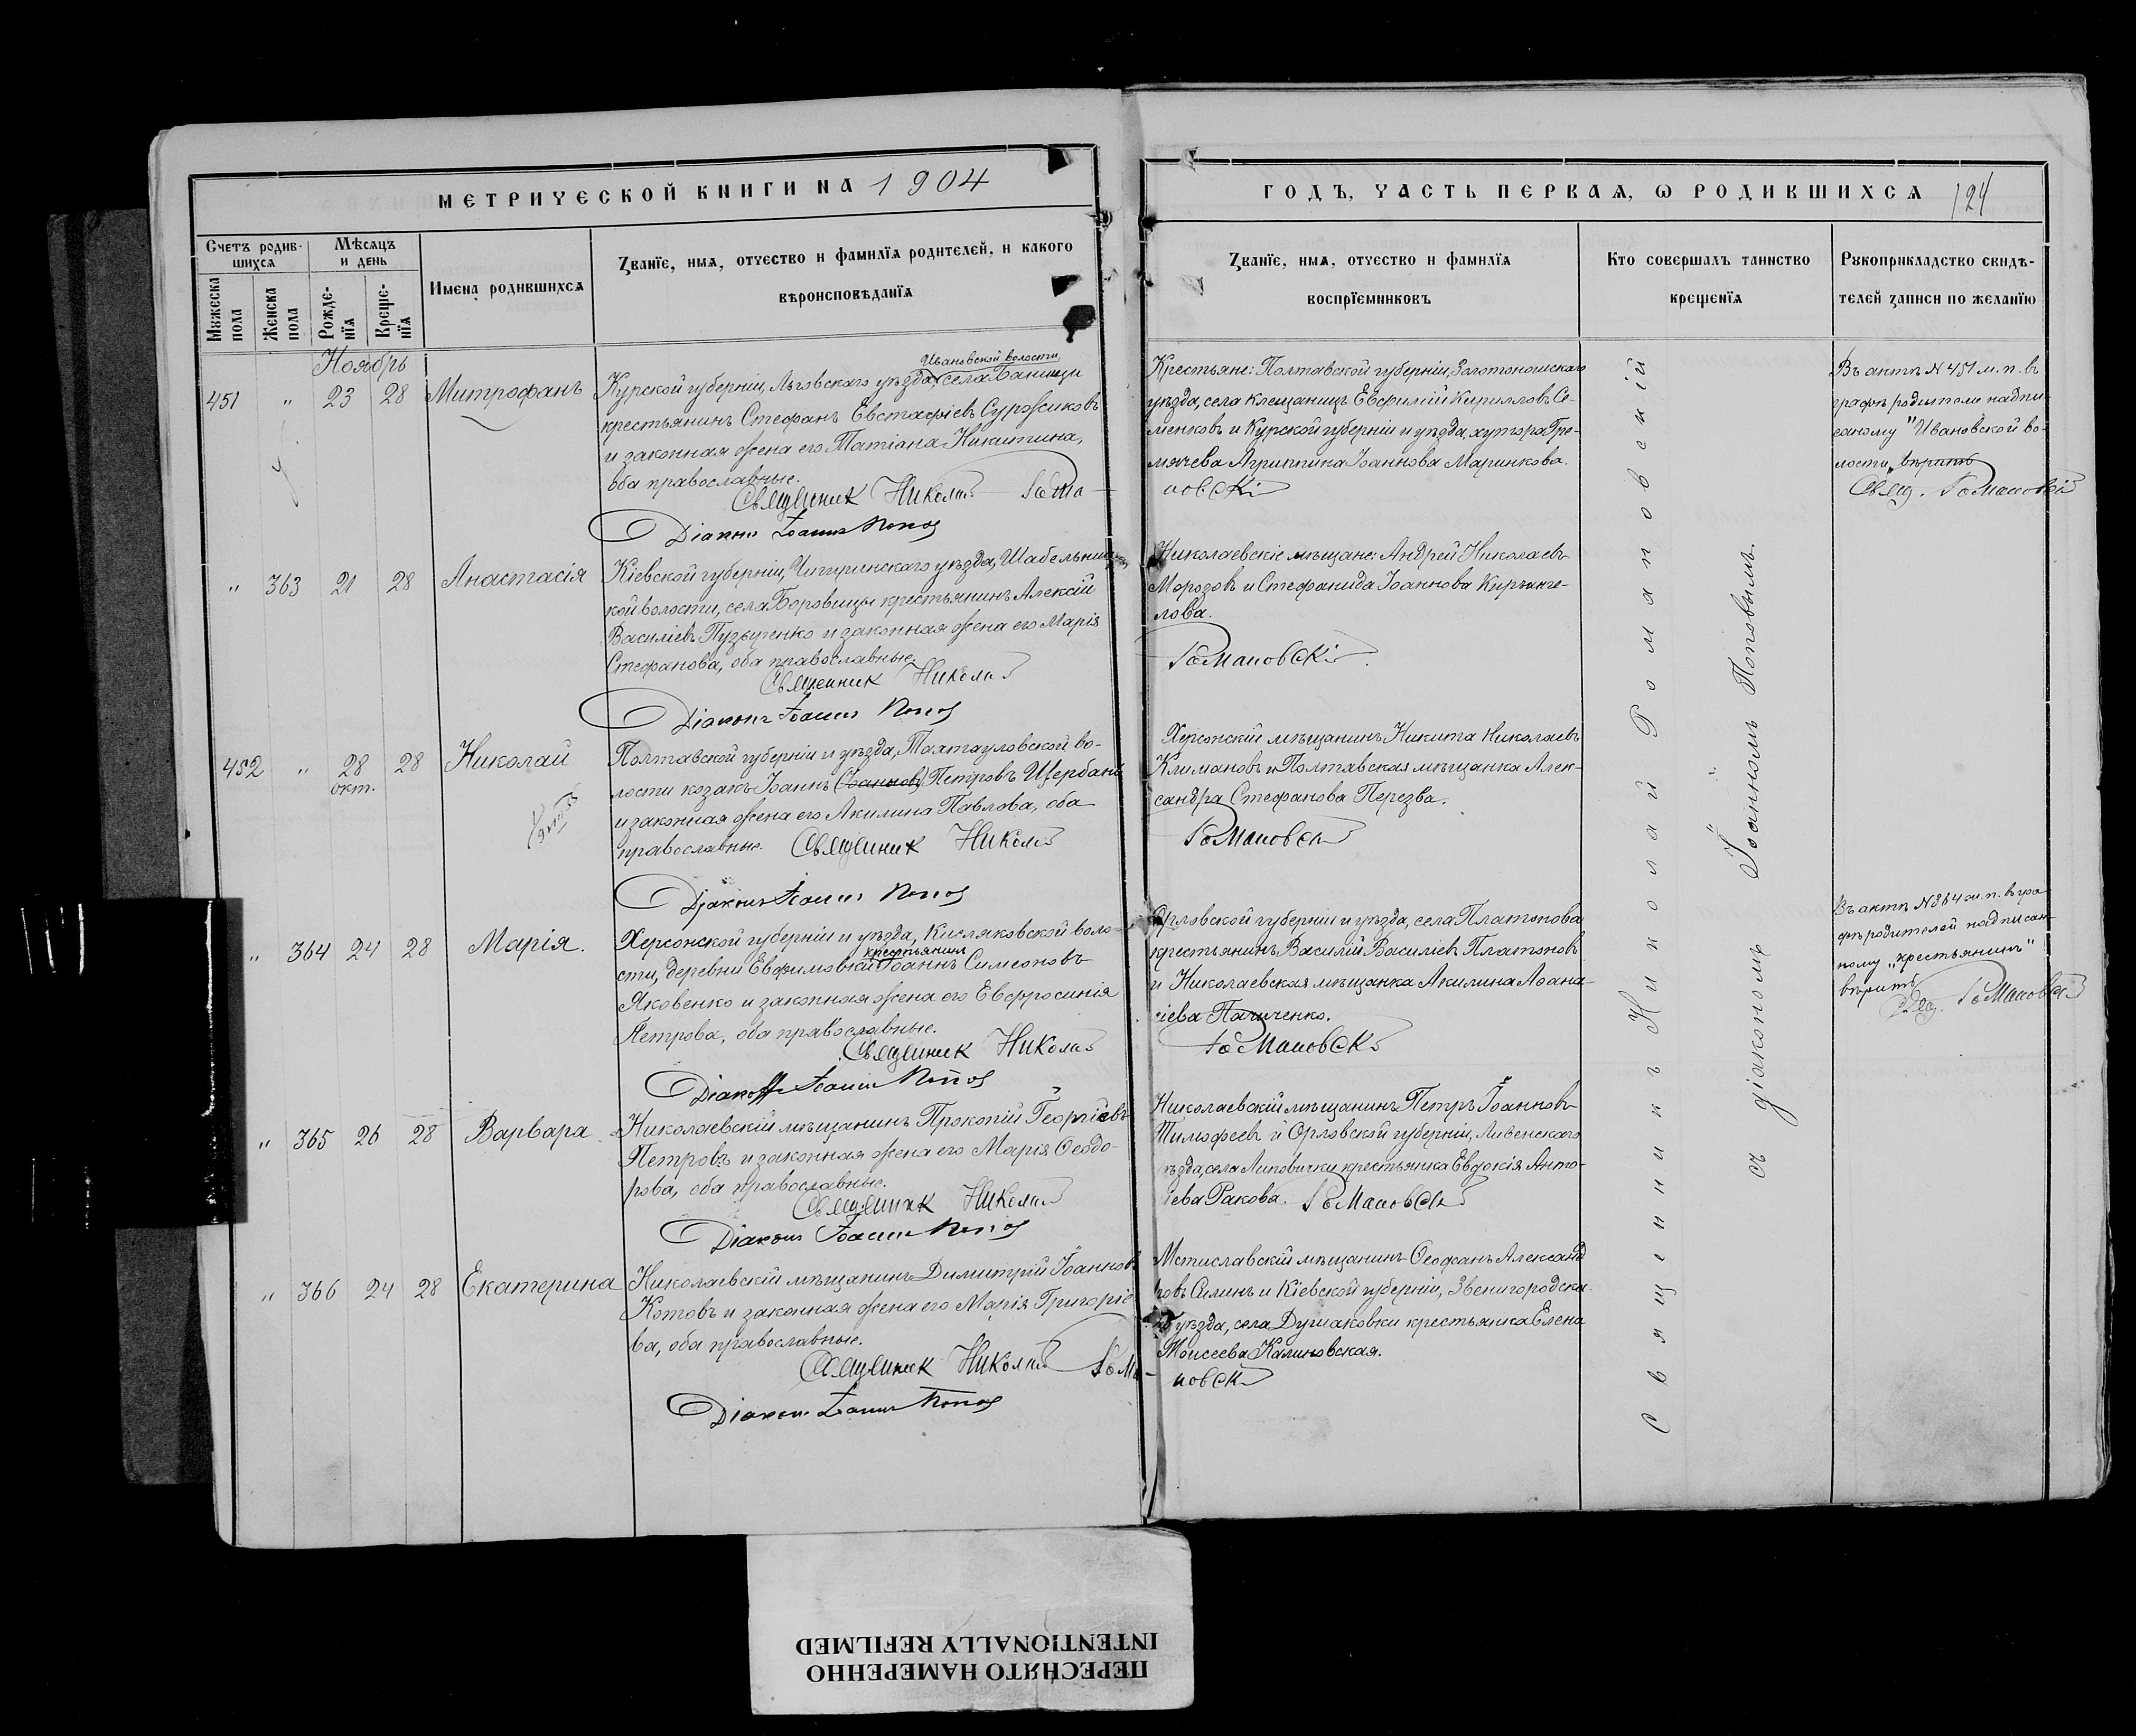 МЕТРИЧЕСКОЙ КНИГИ НА 1904
Счетъ родив-
шихся
Мѣсяцъ
и день
Мужеска
пола
Женска
пола
Рожде-
нїя
Креще-
нїя
Имена родившихся
Званїе, имя, отчество и фамилїа родителей, и какого
вѣроисповѣданїа
Ноябрь
451 " 23 28 Митрофанъ
Ивановской волости
Курской губерніи, Льговскаго уѣзда, села Банищи
крестьянинъ Стефанъ Евстафіевъ Суржиковъ
и законная жена его Татіана Никитина,
оба православные.
Священник Николай Рома-
Діаконъ Іоаннъ Попов
" 363 21 28 Анастасія
Кіевской губерніи, Чигиринскаго уѣзда, Шабельниц-
кой волости, села Боровицы крестьянинъ Алексій
Василіевъ Пузыренко и законная жена его Марія
Стефанова, оба православные.
Священник Николай
Діаконъ Іоаннъ Попов
452 " 28 28 Николай
окт.
Полтавской губерніи и уѣзда, Тахтауловской во-
лости козакъ Іоаннъ (Іоанновъ) Петровъ Щербань
и законная жена его Акилина Павлова, оба
православные. Священник Николай
Діаконъ Іоаннъ Попов
" 364 24 28 Марія.
Херсонской губерніи и уѣзда, Кисляковской воло-
крестьянинъ
сти, деревни Евфимовки Іоаннъ Симеоновъ
Яковенко и законная жена его Евфросинія
Петрова, оба православные.
Священник Николай
Діаконъ Іоаннъ Попов
" 365 26 28 Варвара
Николаевскій мѣщанинъ Прокопій Георгіевъ
Петровъ и законная жена его Марія Ѳеодо-
рова, оба православные.
Священник Николай
Діаконъ Іоаннъ Попов
" 366 24 28 Екатерина
Николаевскій мѣщанинъ Димитрій Іоанновъ
Котовъ и законная жена его Марія Григоріе-
ва, оба православные.
Священник Николай Рома-
Діаконъ Іоаннъ Попов
ГОДЪ, ЧАСТЬ ПЕРВАЯ, Ѡ РОДИВШИХСЯ 124
Званїе, имя, отчество и фамилїа
воспрїемниковъ
Кто совершалъ таинство
крещенїя
Рукоприкладство свидѣ-
телей записи по желанїю
Крестьяне: Полтавской губерніи, Золотоношскаго
уѣзда, села Клещинецъ Евфимій Кирилловъ Се-
менковъ и Курской губерніи и уѣзда, хутора Гре-
мячева Агриппина Іоаннова Маринкова.
новскій
Николаевскіе мѣщане: Андрей Николаевъ
Морозовъ и Стефанида Іоаннова Кирьянге-
лова.
Романовскій
Херсонскій мѣщанинъ Никита Николаевъ
Климановъ и Полтавская мѣщанка Алек-
сандра Стефанова Перезва.
Романовскій
Орловской губерніи и уѣзда, села Платонова
крестьянинъ Василій Василіевъ Платоновъ
и Николаевская мѣщанка Акилина Аѳана-
сіева Пащенко.
Романовскій
Николаевскій мѣщанинъ Петръ Іоанновъ
Тимофеевъ и Орловской губерніи, Ливенскаго
уѣзда, села Липовички крестьянка Евдокія Анто-
ніева Ракова. Романовскій
Мстиславскій мѣщанинъ Ѳеофанъ Александ-
ровъ Силинъ и Кіевской губерніи, Звенигородска-
го уѣзда, села Душаковки крестьянка Елена
Моисеева Калиновская.
новскій
Священникъ Николай Романовскій
съ діакономъ Іоанномъ Поповымъ.
Въ актѣ № 451 м. п. въ
графѣ родители надпи-
санному "Ивановской во-
лости" вѣрить
Свящ. Романовскій
Въ актѣ № 364 ж. п. въ гра-
фѣ родителей надписан-
ному "крестьянинъ"
вѣрить
Свящ. Романовскій
ПЕРЕСНЯТО НАМЕРЕННО
INTENTIONALLY REFILMED